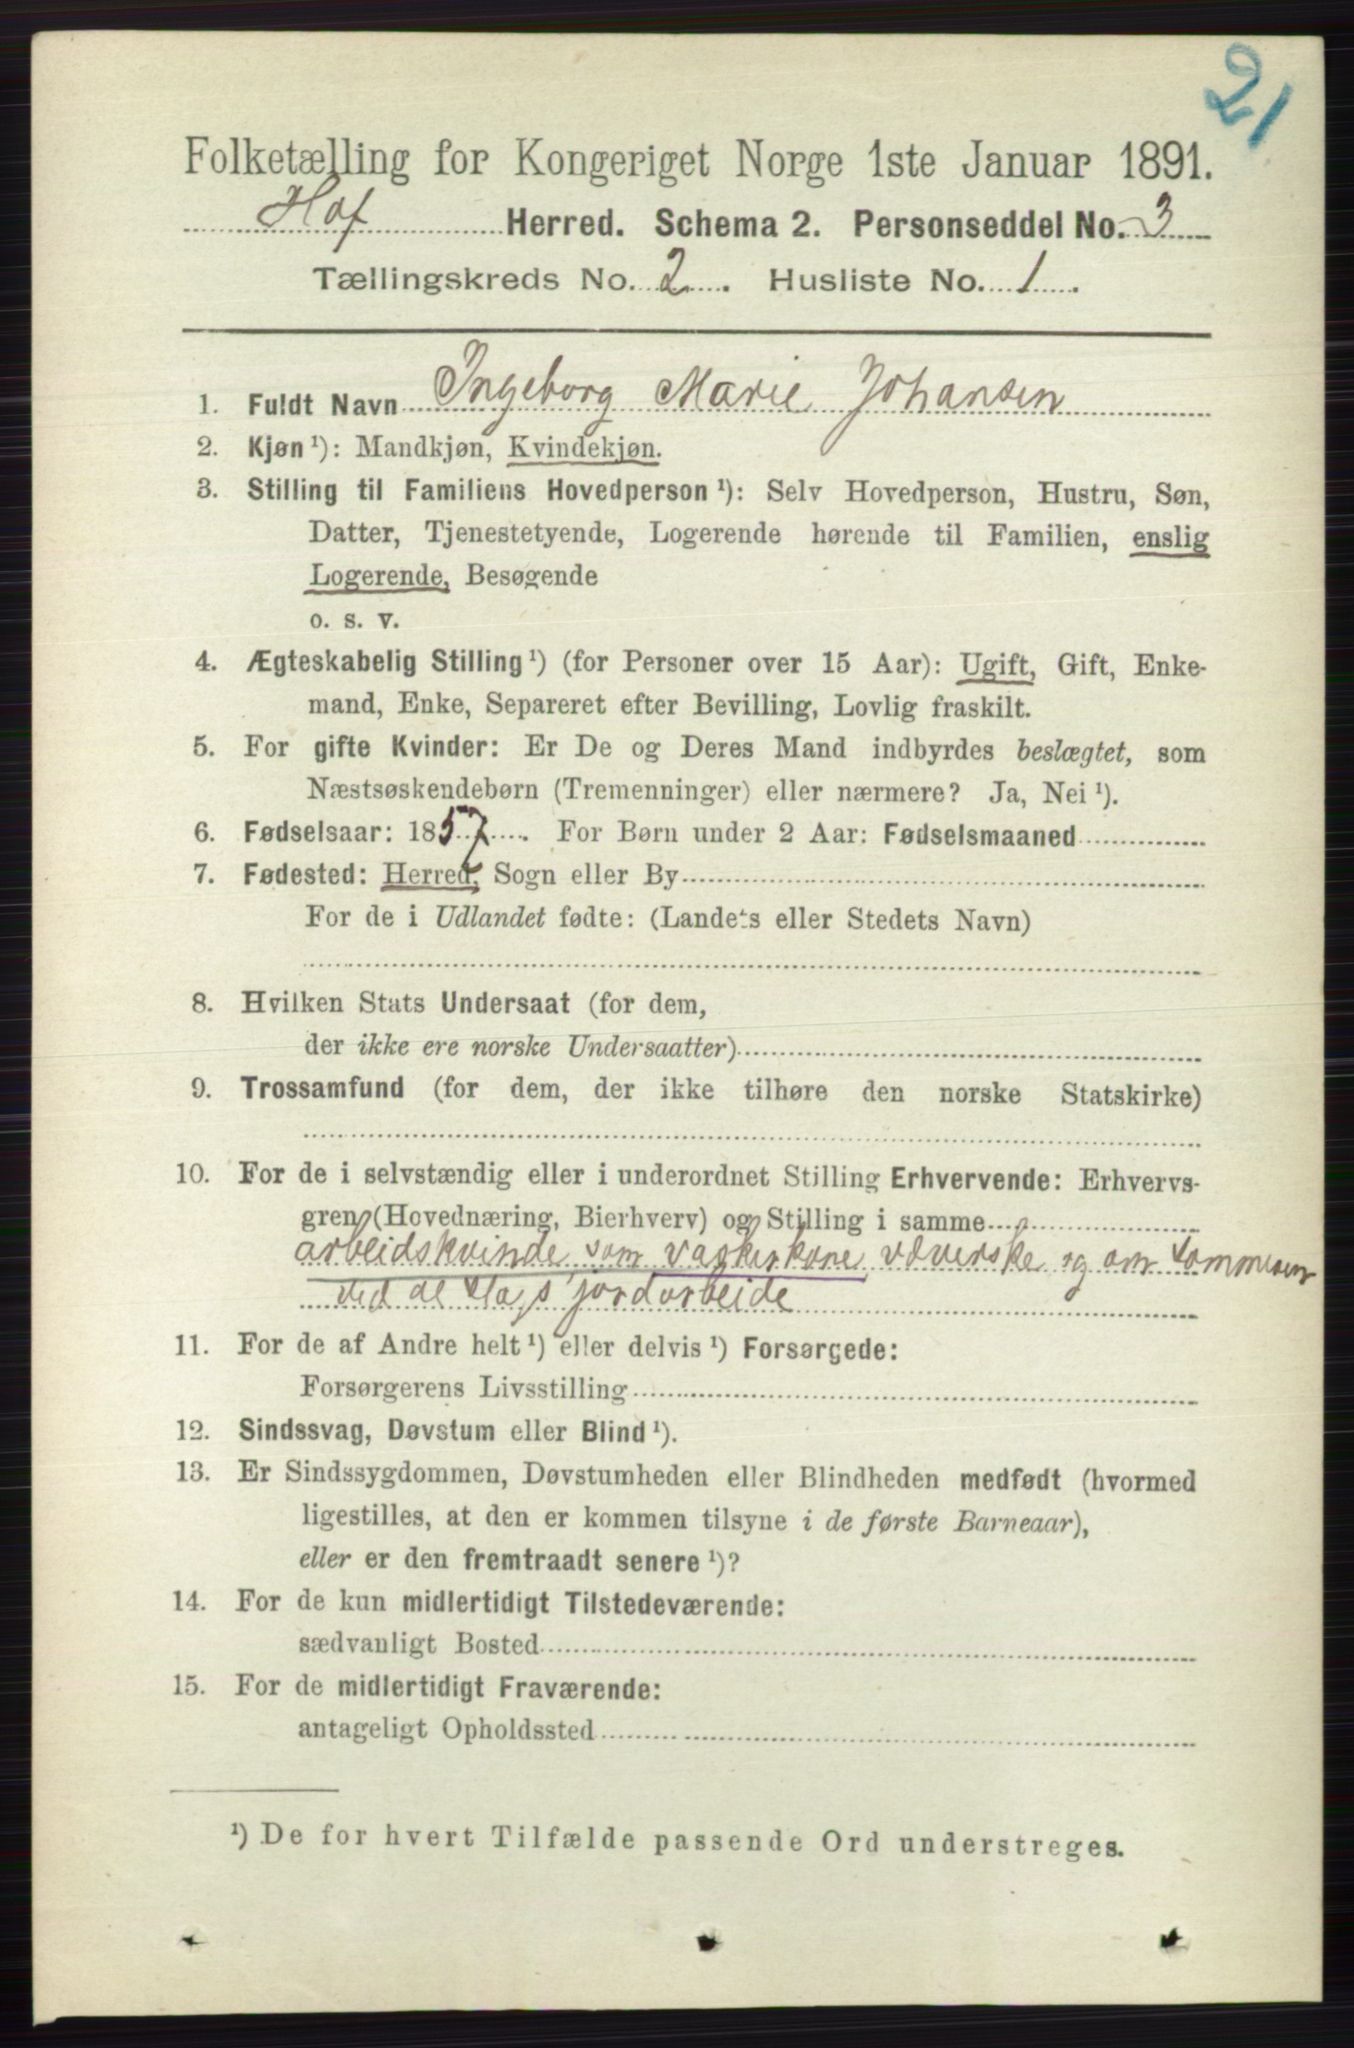 21
Folketælling for Kongeriget Norge 1ste Januar 1891.
Hof Herred. Schema 2. Personseddel No. 3
Tællingskreds No. 2. Husliste No. 1.
1. Fuldt Navn Ingeborg Marie Johansen
2. Kjøn ¹): Mandkjøn, Kvindekjøn.
3. Stilling til Familiens Hovedperson ¹): Selv Hovedperson, Hustru, Søn,
Datter, Tjenestetyende, Logerende hørende til Familien, enslig
Logerende, Besøgende
o. s. v.
4. Ægteskabelig Stilling ¹) (for Personer over 15 Aar): Ugift, Gift, Enke-
mand, Enke, Separeret efter Bevilling, Lovlig fraskilt.
5. For gifte Kvinder: Er De og Deres Mand indbyrdes beslægtet, som
Næstsøskendebørn (Tremenninger) eller nærmere? Ja, Nei ¹).
6. Fødselsaar: 1857. For Børn under 2 Aar: Fødselsmaaned
7. Fødested: Herred, Sogn eller By
For de i Udlandet fødte: (Landets eller Stedets Navn)
8. Hvilken Stats Undersaat (for dem,
der ikke ere norske Undersaatter)
9. Trossamfund (for dem, der ikke tilhøre den norske Statskirke)
10. For de i selvstændig eller i underordnet Stilling Erhvervende: Erhvervs-
gren (Hovednæring, Bierhverv) og Stilling i samme
arbeidskvinde som vaskerkone væverske og om Sommeren
ved de slags jordarbeide
11. For de af Andre helt ¹) eller delvis ¹) Forsørgede:
Forsørgerens Livsstilling
12. Sindssvag, Døvstum eller Blind ¹).
13. Er Sindssygdommen, Døvstumheden eller Blindheden medfødt (hvormed
ligestilles, at den er kommen tilsyne i de første Barneaar),
eller er den fremtraadt senere ¹)?
14. For de kun midlertidigt Tilstedeværende:
sædvanligt Bosted
15. For de midlertidigt Fraværende:
antageligt Opholdssted
¹) De for hvert Tilfælde passende Ord understreges.